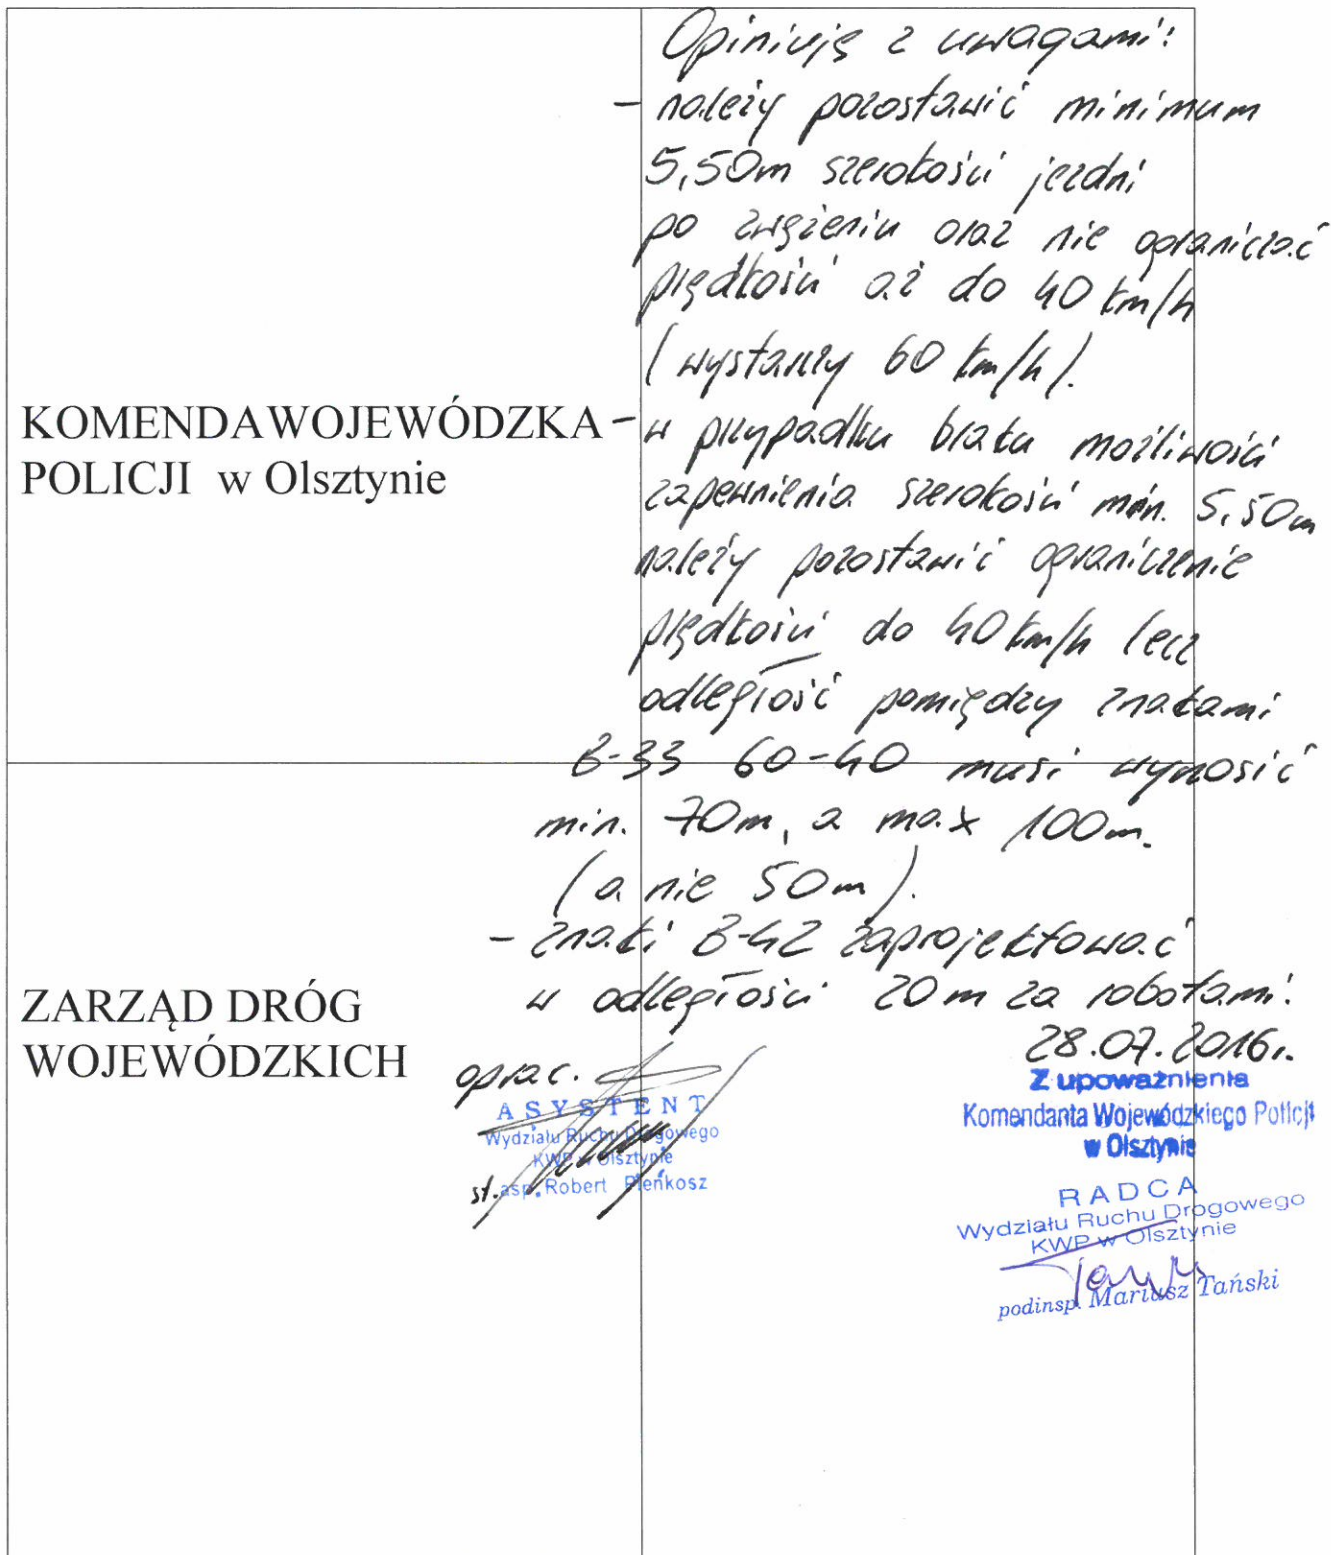 Opiniuję z uwagami:
- należy pozostawić minimum
5,50m szerokości jezdni
po zwężeniu oraz nie ograniczać
prędkości aż do 40 km/h
(wystarczy 60 km/h).
- w przypadku braku możliwości
zapewnienia szerokości min. 5,50m
należy pozostawić ograniczenie
prędkości do 40 km/h lecz
odległość pomiędzy znakami
B-33 60-40 musi wynosić
min. 70m, a max 100m.
(a nie 50m).
- znaki B-42 zaprojektować
w odległości 20m za robotami.
28.07.2016r.
KOMENDAWOJEWÓDZKA
POLICJI w Olsztynie
ZARZĄD DRÓG
WOJEWÓDZKICH
oprac.
ASYSTENT
Wydziału Ruchu Drogowego
KWP w Olsztynie
st. asp. Robert Pieńkosz
Z upoważnienia
Komendanta Wojewódzkiego Policji
w Olsztynie
RADCA
Wydziału Ruchu Drogowego
KWP w Olsztynie
podinsp. Mariusz Tański